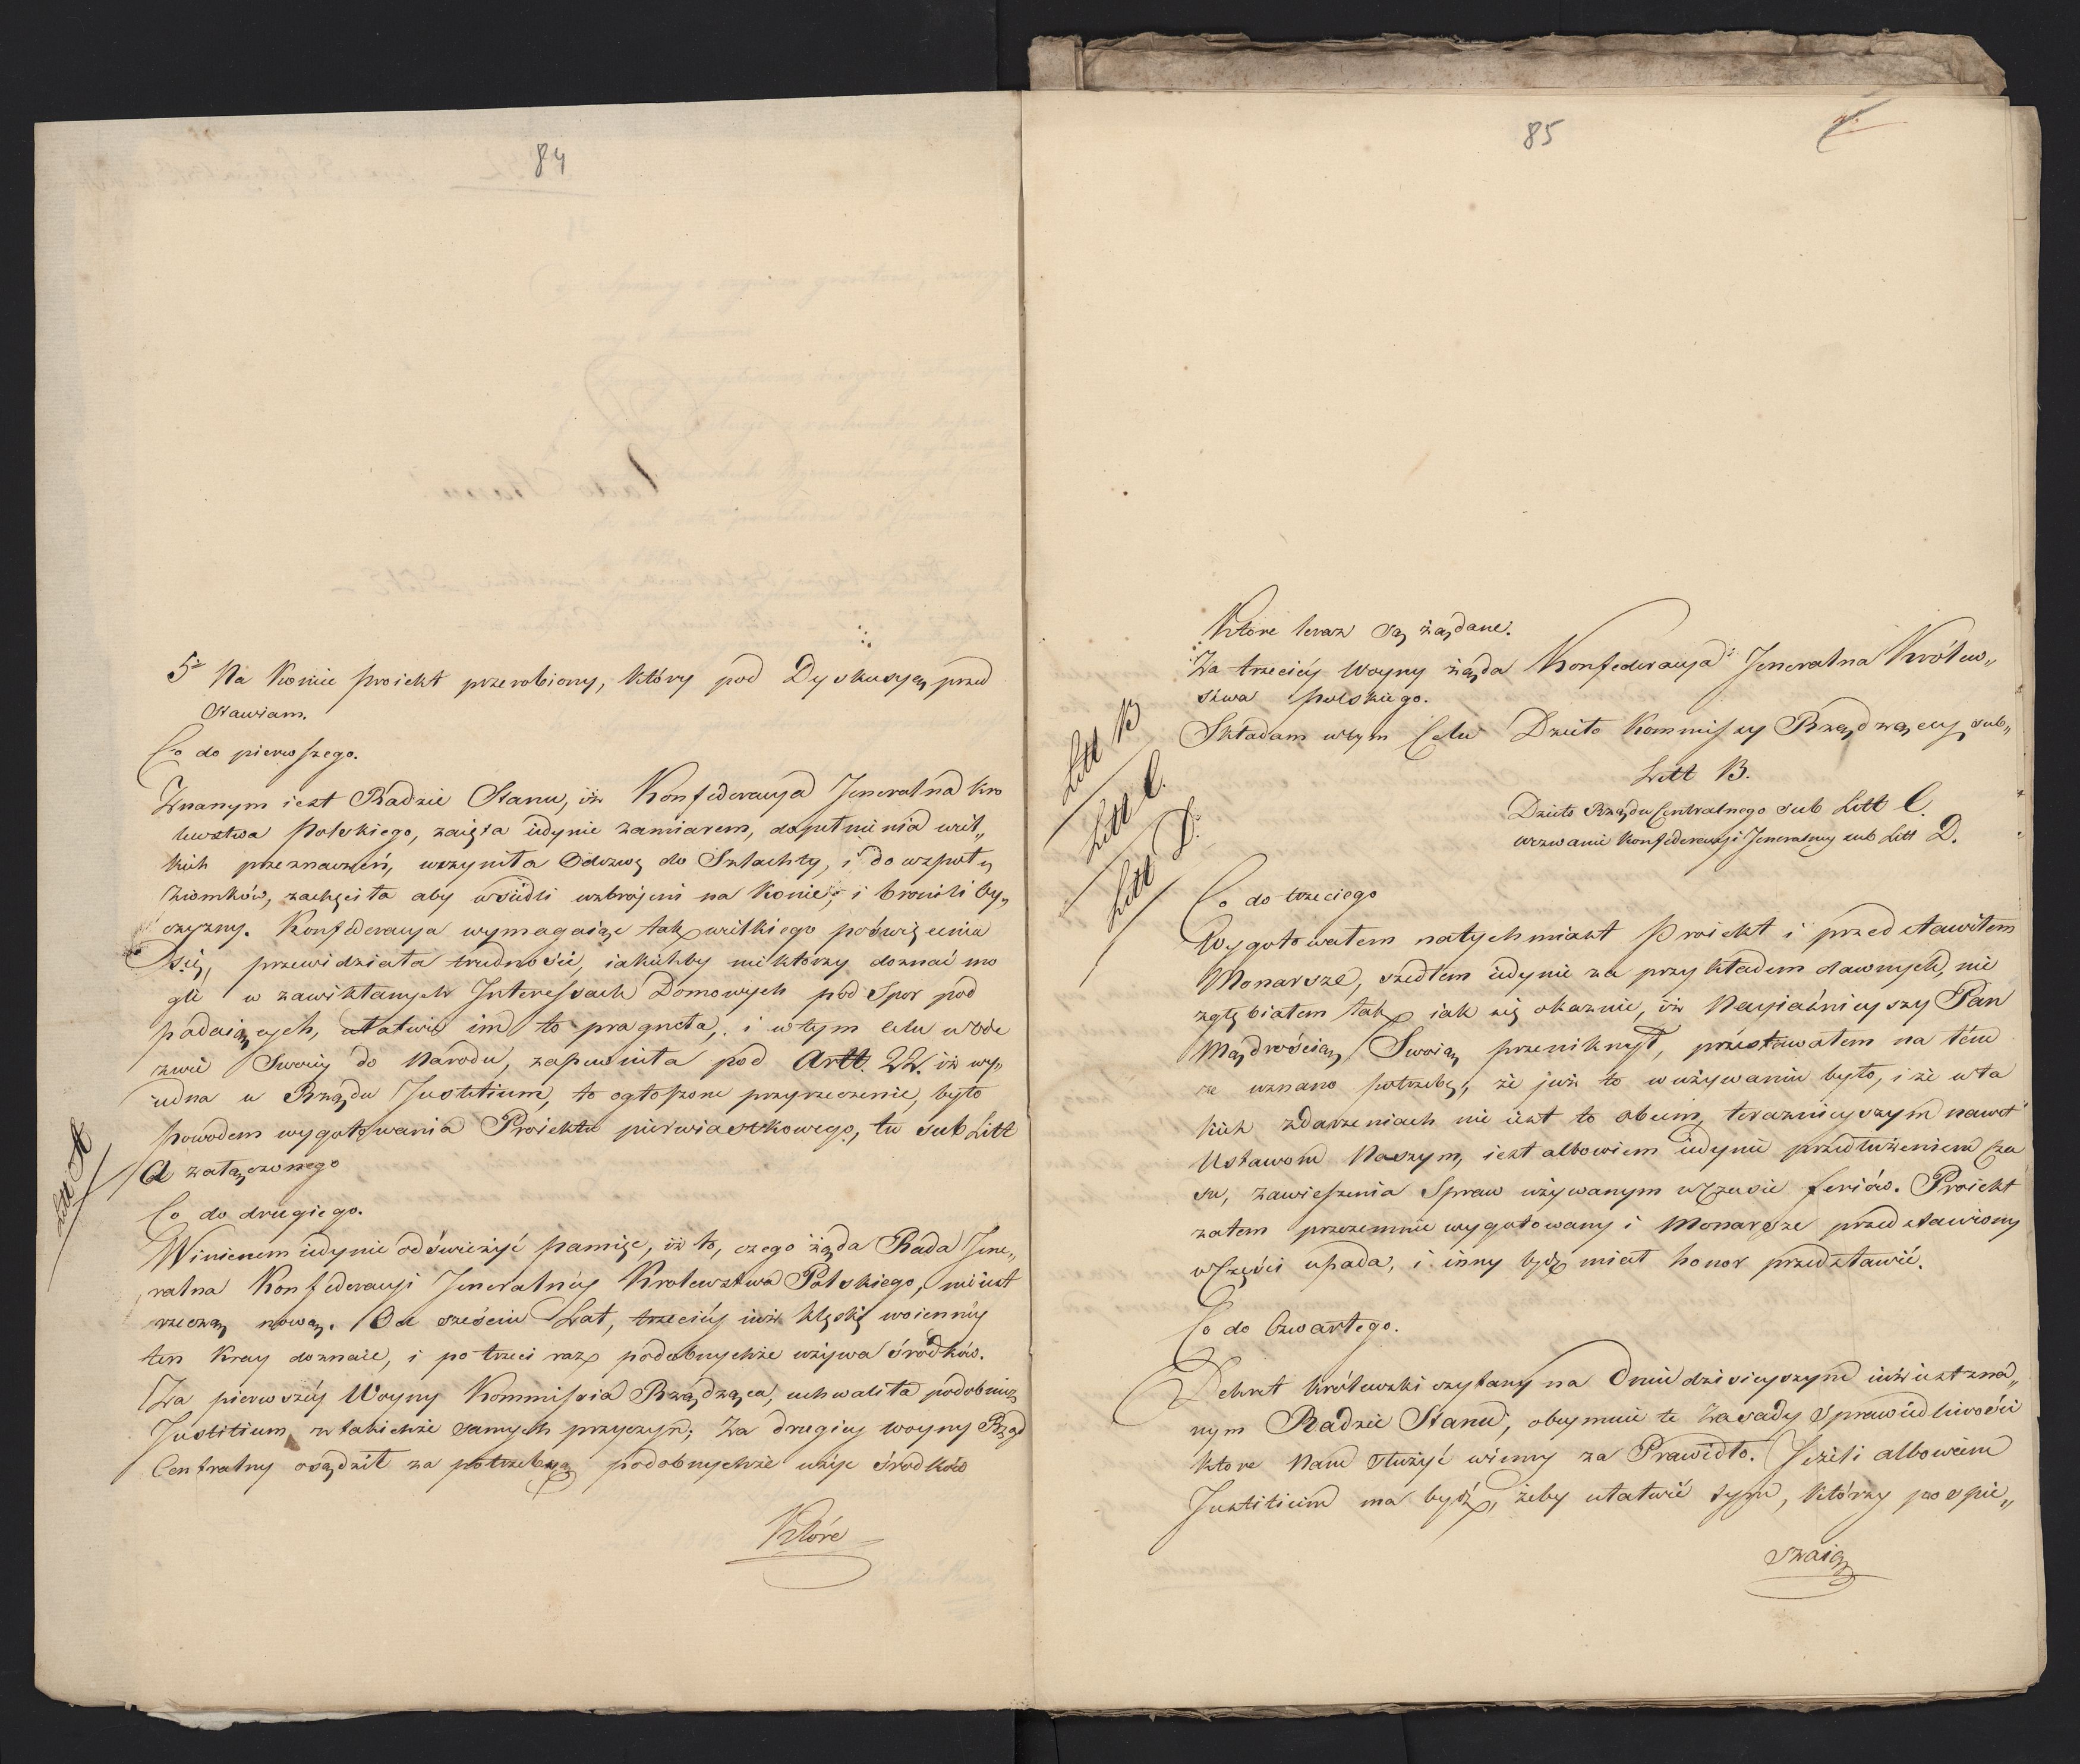 84
5º Na Koniec Proiekt przerobiony, który pod Dyskusyą przed
stawiam.
Co do pierwszego.
Znanym iest Radzie Stanu, iż Konfederacya Jeneralna Kro
lewstwa Polskiego, zaięta iedynie zamiarem, dopełnienia wiel„
kich przeznaczeń, uczyniła Odezwę do Szlachty, i do wspoł„
Ziomków, zachęciła aby wsiedli uzbrojeni na Konie, i bronili Oy„
czyzny. Konfederacya wymagaiąc tak wielkiego poświęcenia
się, przewidziała trudności, iakichby niektórzy doznać mo
gli w zawikłanych Interessach Domowych pod Spor pod
padaiących, ułatwić im to pragnęła, i w tym celu w Ode
zwie Swoiey do Narodu, zapewniła pod Artt. 22. iż wy„
iedna u Rządu Justitium, to ogłoszone przyrzeczenie, było
powodem wygotowania Proiektu pierwiastkowego, tu sub Litt
A załączonego
Litt A
Co do drugiego.
Winienem iedynie odświeżyć pamięć, iż to, czego żąda Rada Jene„
ralna Konfederacyi Jeneralney Krolewstwa Polskiego, nie iest
rzeczą nową. Od sześciu Lat, trzeciey iuż klęski woienney
ten Kray doznaie, i po trzeci raz podobnychże używa środków.
Za pierwszey Woyny Kommissia Rządząca, uchwaliła podobnież
Justitium z takichże samych przyczyn; Za drugiey woyny Rząd
Centralny osądził za potrzebną podobnychże użyć środków
Które
85
Które teraz są żądane.
Za trzeciey Woyny żąda Konfederacya Jeneralna Królew„
stwa Polskiego.
Składam w tym Celu Dzieło Kommissyi Rządzącey sub„
Litt B.
Dzieło Rządu Centralnego sub Litt C.
wezwanie Konfederacyi Jeneralney sub Litt D.
Litt B
Litt C.
Litt D.
Co do trzeciego
Wygotowałem natychmiast Proiekt i przedstawiłem
Monarsze, szedłem iedynie za przykładem dawnych, nie
zgłębiałem tak iak się okazuie, iż Nayiaśnieyszy Pan
Mądrością Swoią przeniknął, przestawałem na tem
że uznano potrzebę, że już to w używaniu było, i że w ta
kich zdarzeniach nie iest to obcem, teraznieyszym nawet
Ustawom Naszym, iest albowiem iedynie przedłużeniem Cza
su, zawieszenia Spraw używanym w Czasie feriów. Proiekt
zatem przezemnie wygotowany i Monarsze przedstawiony
w Części upada, i inny będę miał honor przedstawić.
Co do Czwartego.
Dekret królewski czytany na Dniu dzisieyszym iuż iest zna„
nym Radzie Stanu, obeymuie te Zasady Sprawiedliwości
które Nam służyć winny za Prawidło. Jeżeli albowiem
Justitium ma bydź, żeby ułatwić tym, którzy pospie„
szaią